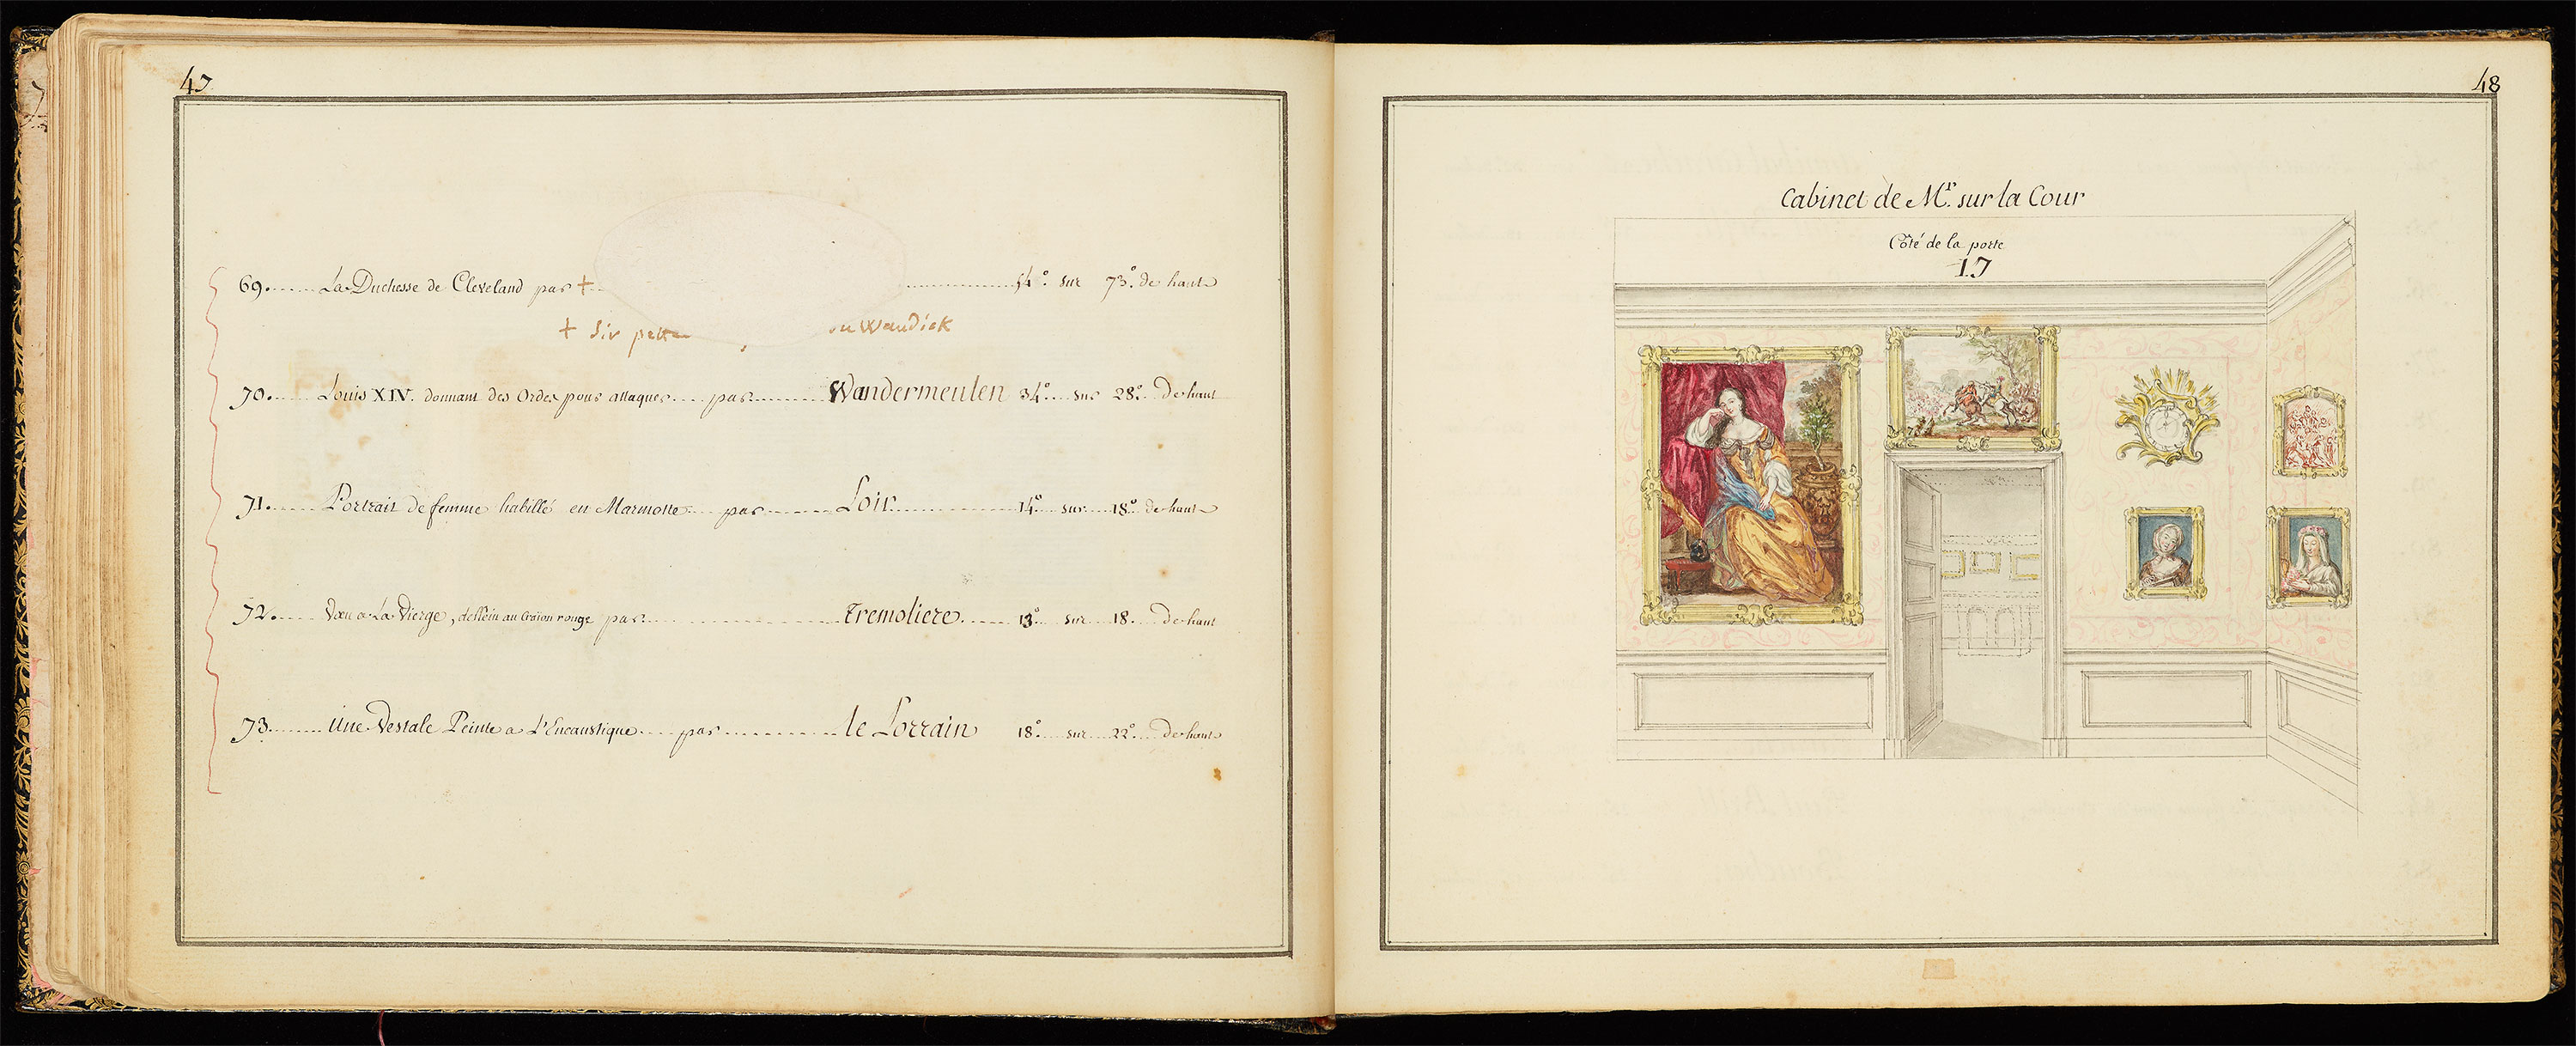 47
69. La Duchesse de Cleveland par + 54° sur 73° de haut
+ Sir petter ou Wandick
70. Louis XIV. donnant des Ordes pour attaquer par Wandermeulen 34° sur 28° De haut
71. Portrait de femme habillé en Marmotte par Loir 14° sur 18° de haut
72. Vœu a La Vierge, dessein au Craion rouge par Tremoliere 13° sur 18. De haut
73. Une Vestale Peinte a L'Encaustique par le Lorrain 18° sur 22° De haut
48
Cabinet de Mr. sur la Cour
Côté de la porte
17